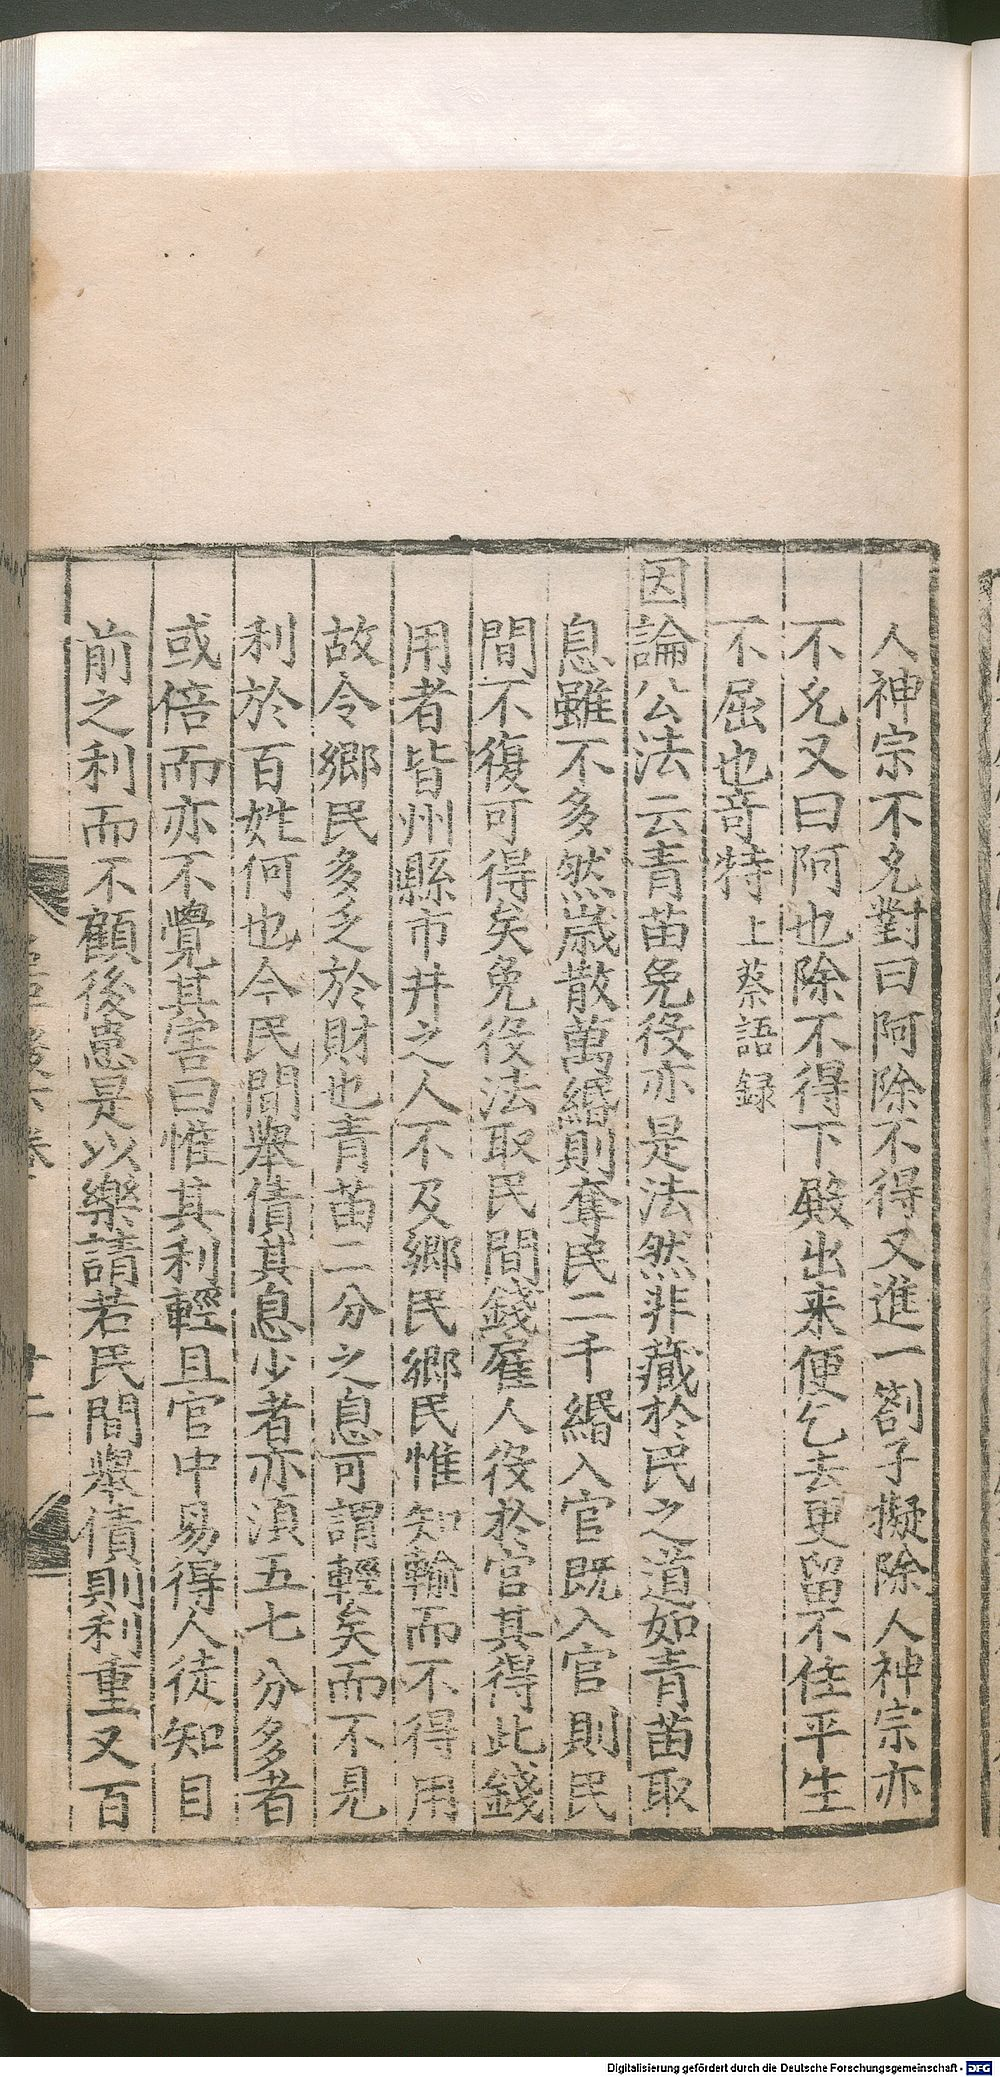 人神宗不允對曰阿除不得又進一劄子擬除人神宗亦
不允又曰阿也除不得下殿出来便乞去更留不住平生
不屈也奇特上蔡語録
因論公法云青苗免役亦是法然非藏於民之道如青苗取
息雖不多然歳散萬緡則奪民二千緡入官既入官則民
間不復可得矣免役法取民間錢雇人役於官其得此錢
用者皆州縣市井之人不及郷民郷民惟知輸而不得用
故令郷民多乏於財也青苗二分之息可謂輕矣而不見
利於百姓何也今民間舉債其息少者亦須五七分多者
或倍而亦不覺其害曰惟其利輕且官中易得人徒知目
前之利而不顧後患是以樂請若民間舉債則利重又百
Digitalisierung gefördert durch die Deutsche Forschungsgemeinschaft - DFG